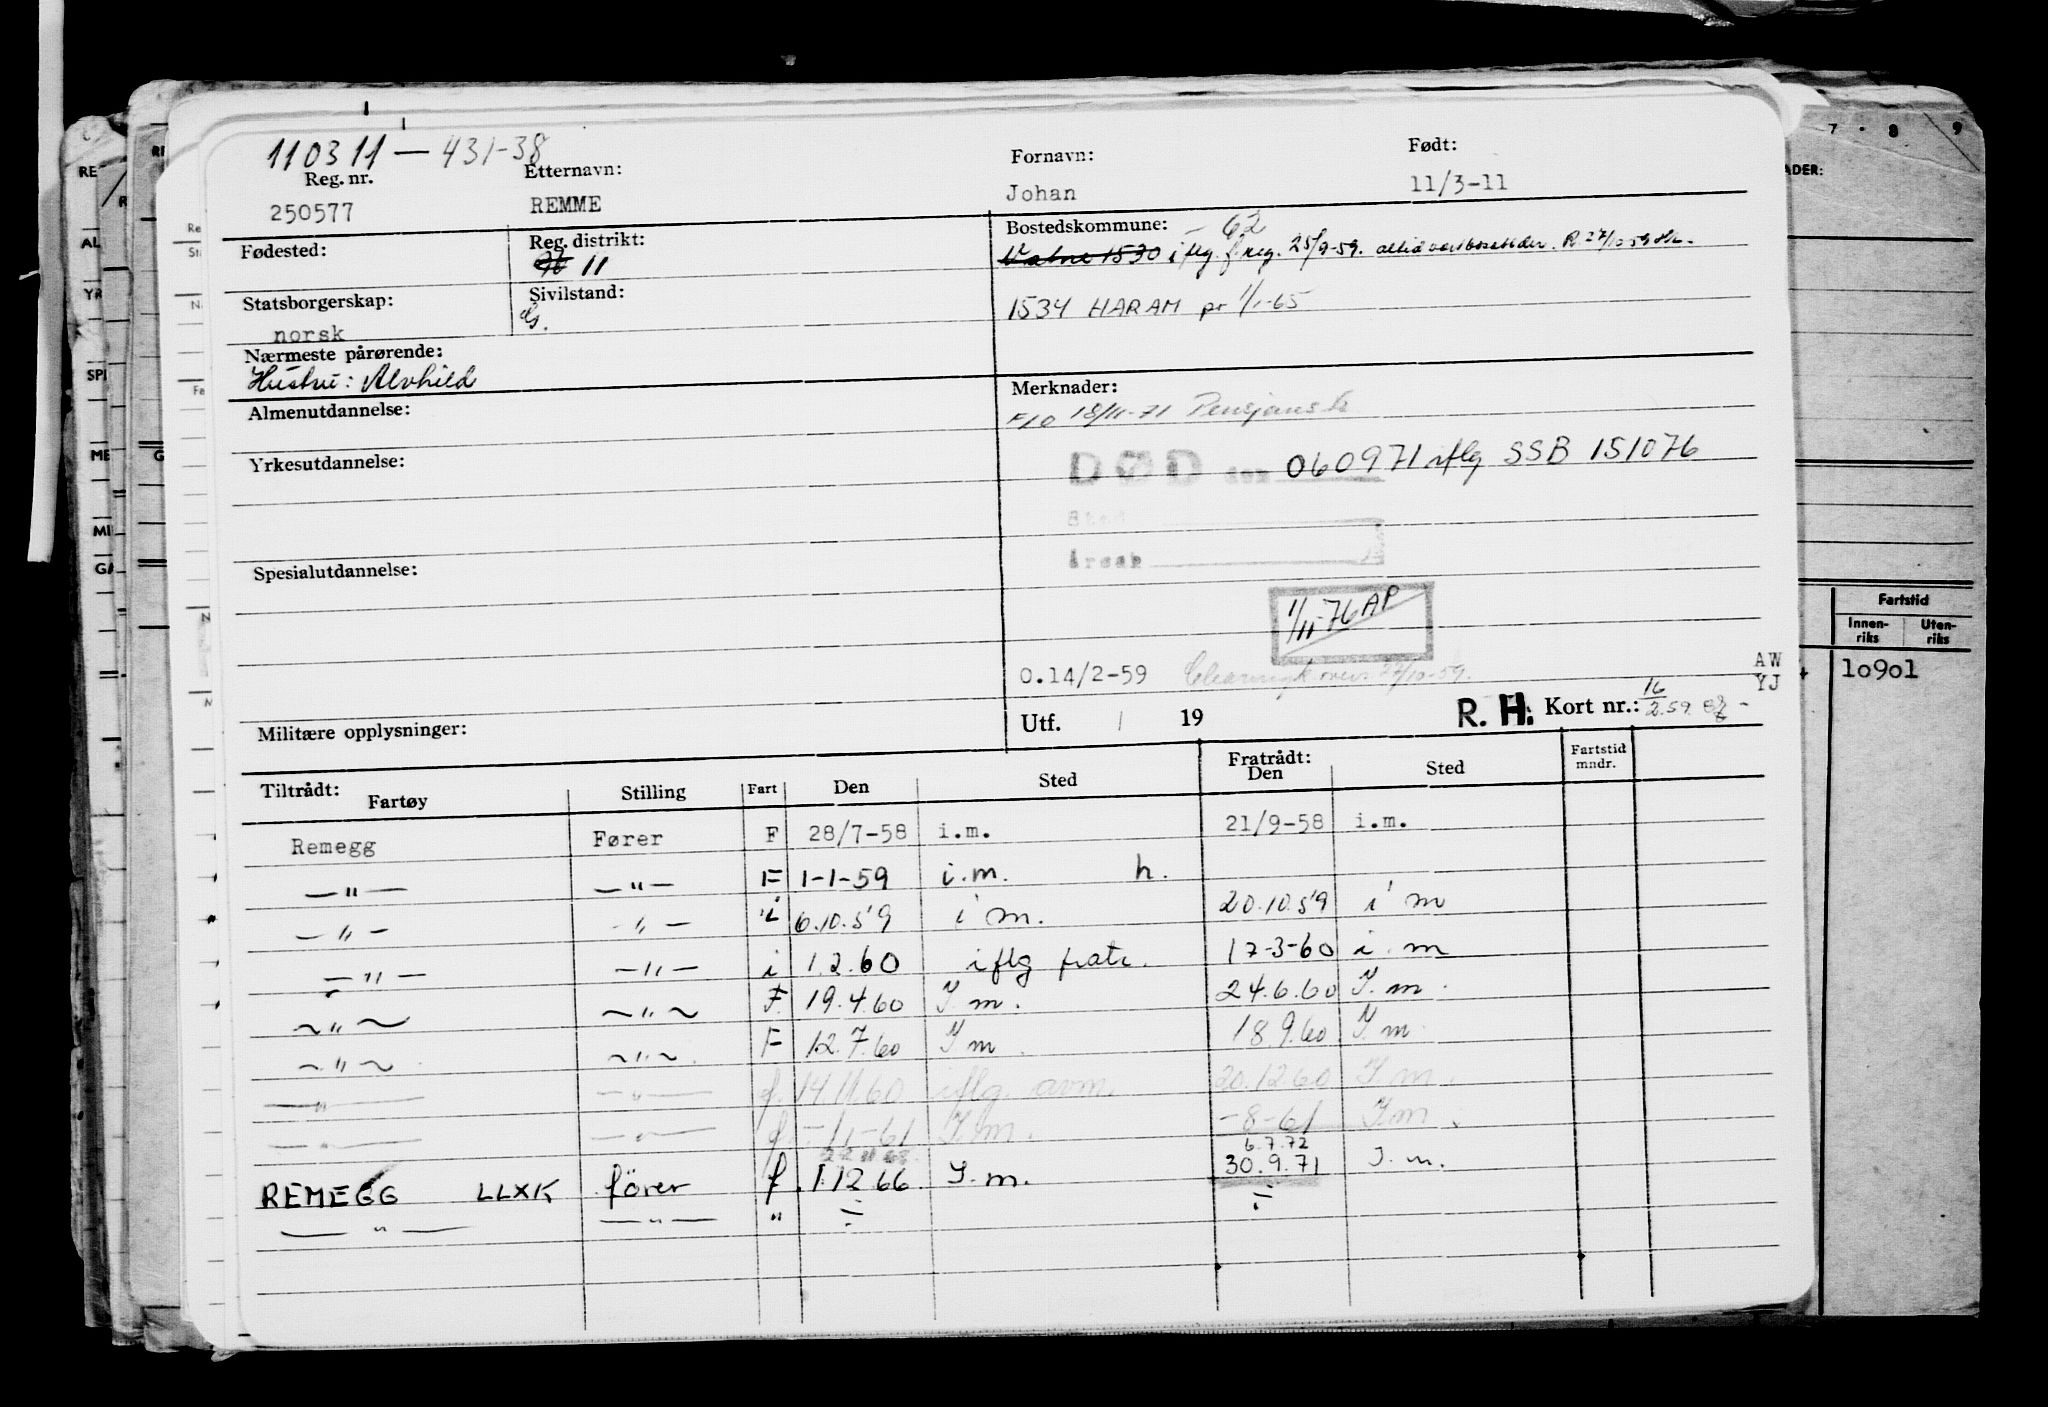 110311 — 431-38
Reg. nr. Etternavn: Fornavn: Født:
250577 REMME Johan 11/3-11
Fødested: Reg. distrikt: Bostedskommune: - 62
11 Vatne 1530 iflg. f.reg. 25/9-59. R. 27/10-59
Statsborgerskap: Sivilstand: 1534 HARAM pr 1/1-65
norsk G.
Nærmeste pårørende:
Hustru: Alvhild Merknader:
Almenutdannelse: F10 18/11-71 Pensjons
Yrkesutdannelse: DØD den 060971 iflg SSB 151076
Sted
årsak
Spesialutdannelse:
1/11-76 AP
0.14/2-59 27/10-59. AW
YJ
Militære opplysninger: Utf. / 19 R. H. Kort nr.: 16/2.59
Tiltrådt: Fratrådt:
Fartøy Stilling Fart Den Sted Den Sted Fartstid mndr.
Remegg Fører F 28/7-58 i.m. 21/9-58 i.m.
—"— —"— F 1-1-59 i.m. h.
—"— "— i 6.10.59 i m. 20.10.59 i m
—"— —"— i 1.2.60 iflg fratr. 17-3-60 i. m
~"~ ~"~ F 19.4.60 I. m. 24.6.60 I. m.
~"~ ~"~. F 12.7.60 I m. 18.9.60 I. m
—"— —"— f. 14.11.60 iflg. avm. 20.12.60 I. m.
—"— —"— f -61 I. m. -8-61 I. m.
6.7.72
REMEGG LLXK förer f. 1.12.66 I. m. 30.9.71 I. m.
—"— —"— " ÷ ÷
ADER:
7 · 8 9
Fartstid
Innen-riks Uten-riks
10901